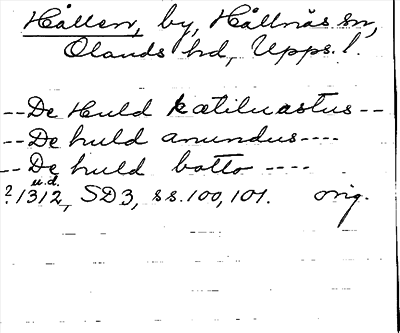 Hållen, by, Hållnäs sn,
Olands hd, Upps. l.
--De Huld kætiluastus--
--De huld anundus----
--De huld botto ----
u.d.
? 1312, SD3, ss. 100, 101. orig.